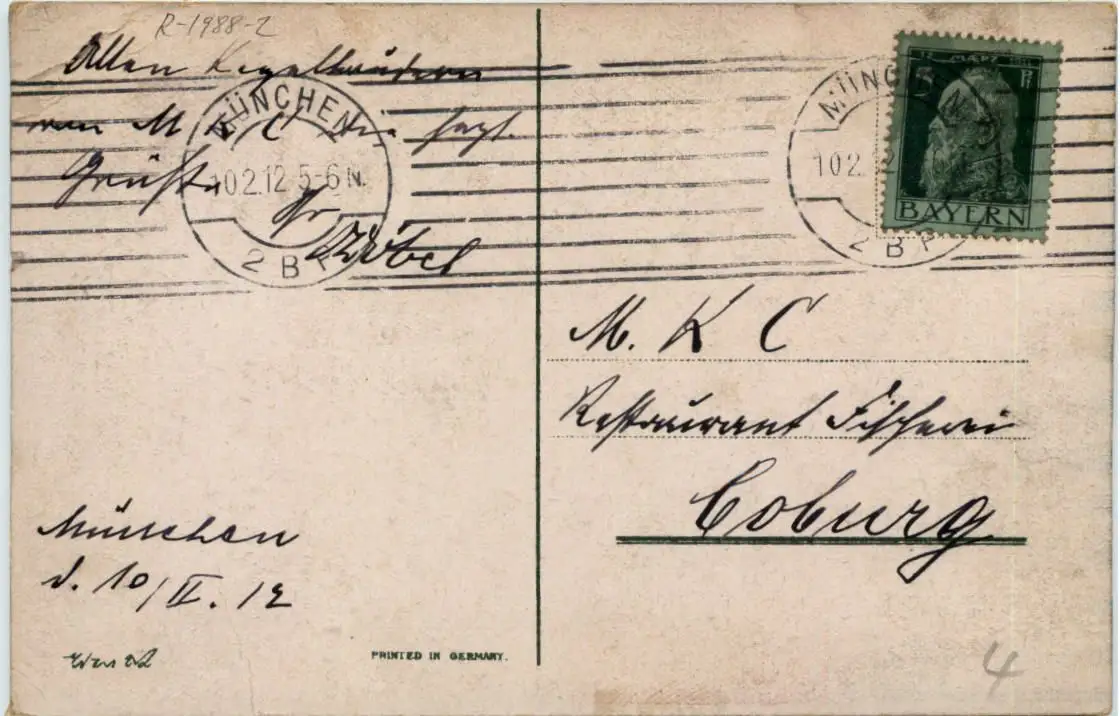 R-1988-2
Allen Kegelbrüdern
von M K C
Grüße
MÜNCHEN
10 2.12 5-6 N.
2 B P
MÜNCHEN
10 2.
2 B P
5 Pf
BAYERN
M. K C
Restaurant Fischerei
Coburg
München
d. 10/II. 12
PRINTED IN GERMANY.
4